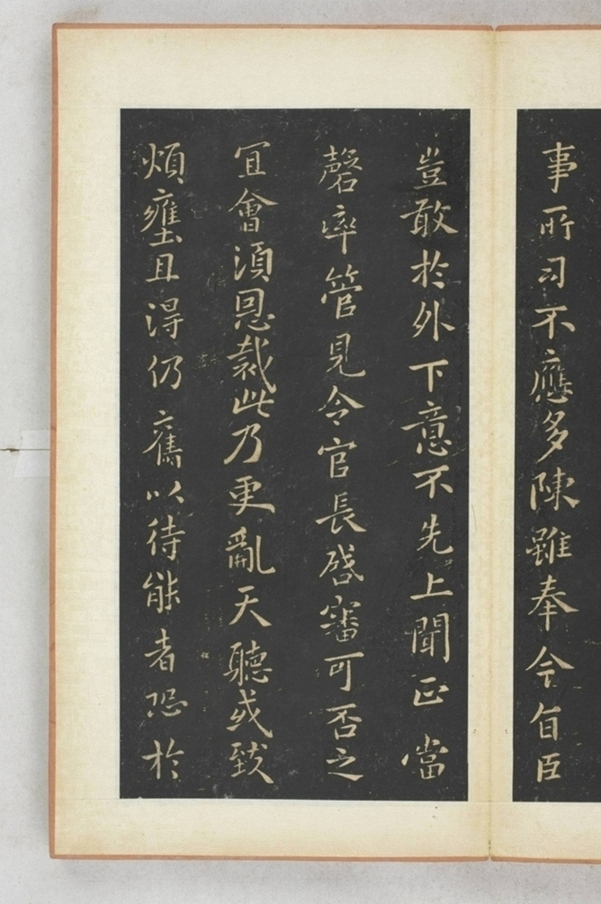 事所司不應多陳雖奉令旨臣
豈敢於外下意不先上聞正當
罄率管見令官長啓審可否之
宜會須恩裁此乃更亂天聽或致
煩壅且得仍舊以待能者恐於